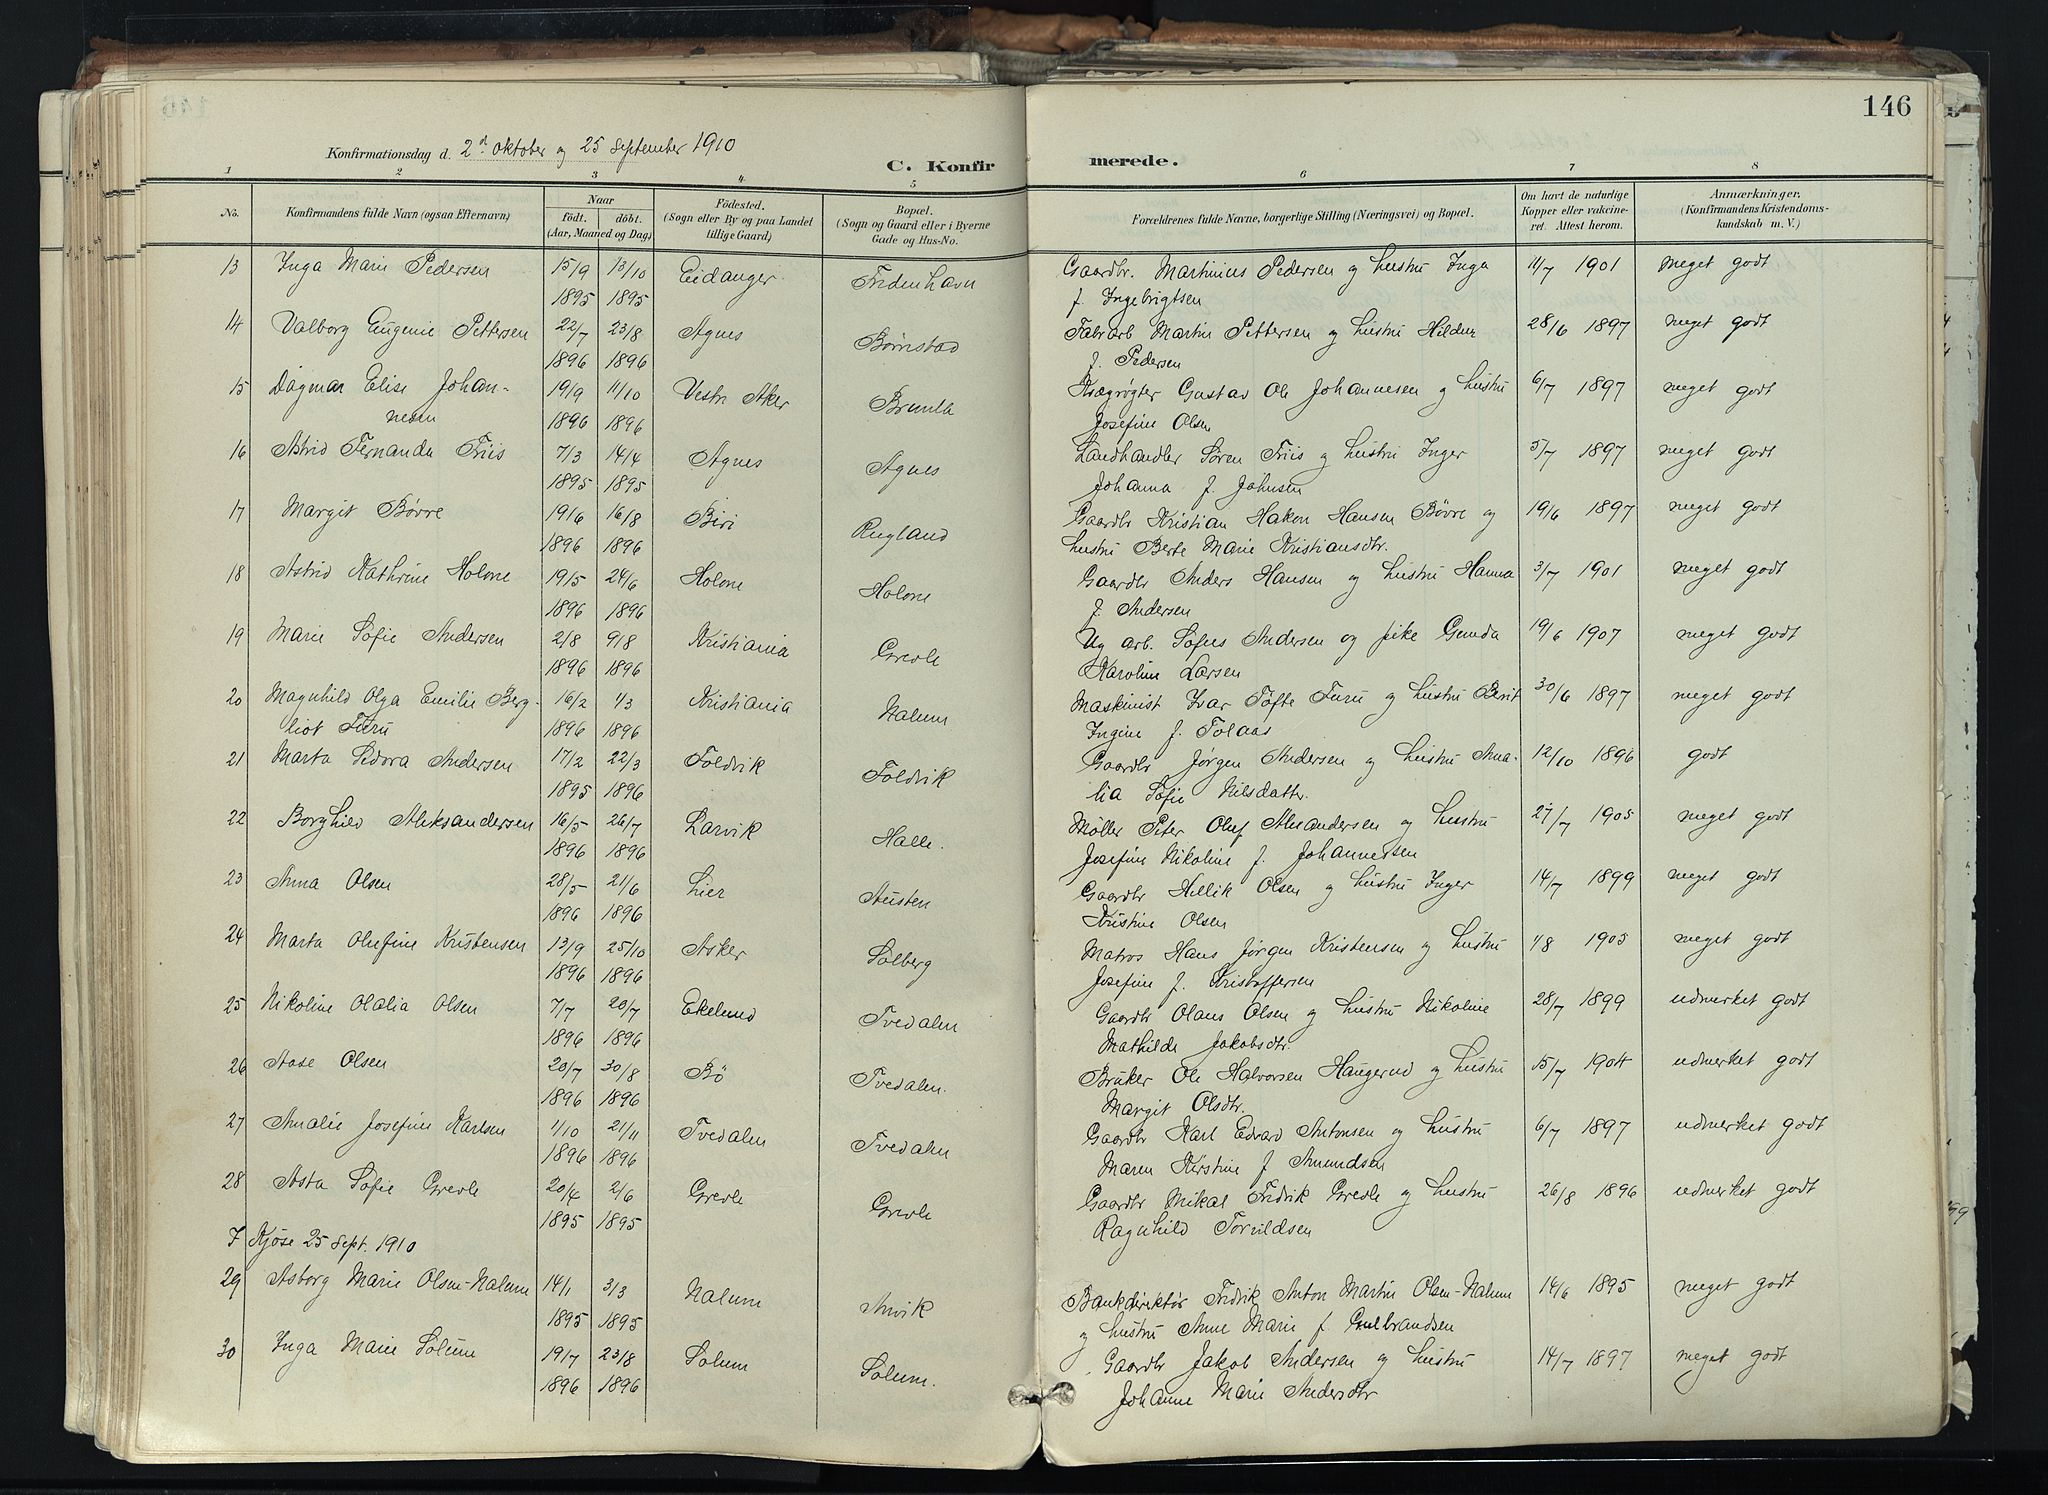 146
Konfirmationsdag d. 2d oktober og 25 September 1910
C. Konfirmerede.
1 2 3 4 5 6 7 8
No. Konfirmandens fulde Navn (ogsaa Efternavn) Naar født. døbt. (Aar, Maaned og Dag) Fødested. (Sogn eller By og paa Landet tillige Gaard) Bopæl. (Sogn og Gaard eller i Byerne Gade og Hus-No. Forældrenes fulde Navne, borgerlige Stilling (Næringsvei) og Bopæl. Om havt de naturlige Kopper eller vakcineret. Attest herom. Anmærkninger. (Konfirmandens Kristendomskundskab m. V.)
13 Inga Marie Pedersen 15/9 13/10 Eidanger Fredenhavn Gaardbr. Martinius Pedersen og hustru Inga 11/7 1901 meget godt
1895 1895 f. Ingebrigtsen
14 Valborg Eugenie Pettersen 22/7 23/8 Agnes Børnstad Fabrarb Martin Pettersen og hustru Hilda 28/6 1897 meget godt
1896 1896 f. Pedersen
15 Dagmar Elise Johan- 19/9 11/10 Vestre Aker Brunla Kægrøgter Gustav Ole Johannesen og hustru 6/7 1897 meget godt
nesen 1896 1896 Josefine Olsen
16 Astrid Fernanda Friis 7/3 14/4 Agnes Agnes Landhandler Søren Friis og hustru Inger 5/7 1897 meget godt
1895 1895 Johanna f. Johnsen
17 Margit Bøvre 19/6 16/8 Biri Rugland Gaardbr Kristian Hakon Hansen Bøvre og 19/6 1897 meget godt
1896 1896 hustru Berte Marie Kristiansdtr.
18 Astrid Kathrine Holone 19/5 24/6 Holone Holone Gaardbr Anders Hansen og hustru Hanna 3/7 1901 meget godt
1896 1896 f. Andersen
19 Marie Sofie Andersen 2/8 9/8 Kristiania Grevle Ug arb. Sofus Andersen og pike Gunda 19/6 1907 meget godt
1896 1896 Karoline Larsen
20 Magnhild Olga Emilie Berg- 16/2 1/3 Kristiania Nalum Maskinist Ivar Tøfte Furu og hustru Berit 30/6 1897 meget godt
liot Furu 1896 1896 Ingine f. Folaas
21 Marta Sidora Andersen 17/2 22/3 Foldvik Foldvik Gaardbr Jørgen Andersen og hustru Ama- 12/10 1896 godt
1895 1896 lia Sofie Nilsdatter.
22 Borghild Aleksandersen 16/5 26/7 Larvik Halle. Møller Peter Oluf Alexandersen og hustru 27/7 1905 meget godt
1896 1896 Josefine Nikoline f. Johannessen
23 Anna Olsen 28/5 21/6 Lier Austen Gaardbr Hellik Olsen og hustru Inger 14/7 1899 meget godt
1896 1896 Kristine Olsen
24 Marta Olufine Kristensen 13/9 25/10 Asker Solberg Matros Hans Jørgen Kristensen og hustru 4/8 1903 meget godt
1896 1896 Josefine f. Kristoffersen
25 Nikoline Olalia Olsen 7/7 20/7 Ekelund Tvedalen Gaardbr Olaus Olsen og hustru Nikoline 28/7 1899 udmerket godt
1896 1896 Mathilde Jakobsdtr.
26 Aase Olsen 20/7 30/8 Bø Tvedalen. Bruker Ole Halvorsen Haugerud og hustru 15/7 1904 udmerket godt
1896 1896 Margit Olsdtr.
27 Amalie Josefine Karlsen 1/10 21/11 Tvedalen Tvedalen Gaardbr Karl Edvard Antonsen og hustru 6/7 1897 udmerket godt
1896 1896 Maren Kirstine f. Amundsen
28 Asta Sofie Grevle 20/4 2/6 Grevle Grevle Gaardbr Mikal Fredrik Grevle og hustru 26/8 1896 udmerket godt
1895 1895 Ragnhild Torvildsen
I Kjose 25 Sept. 1910
29 Asborg Marie Olsen-Nalum 14/1 3/3 Nalum Anvik Bankdirektør Fredrik Anton Martin Olsen-Nalum 14/6 1895 meget godt
1895 1895 og hustru Anne Marie f. Gulbrandsen
30 Inga Marie Solum 19/7 23/8 Solum Solum. Gaardbr Jakob Andersen og hustru 14/7 1897 meget godt
1896 1896 Johanne Marie Andersdtr